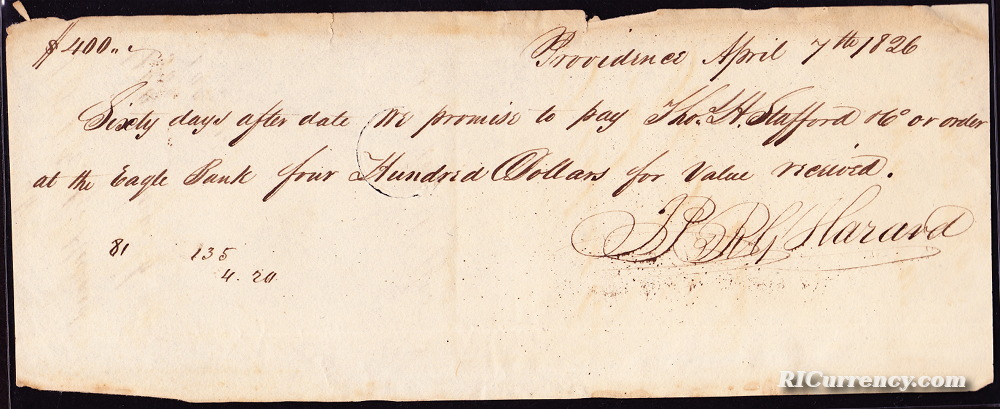 $400..
Providence April 7th 1826
Sixty days after date We promise to pay Tho. H. Stafford &Co or order
at the Eagle Bank four Hundred Dollars for Value reciived.
J P & R G Hazard
81 135
4.20
RICurrency.com